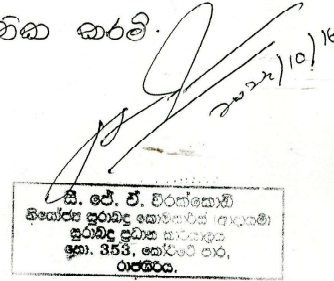 කරමි.
2024/10/16
සී. ජේ. ඒ. වීරක්කොඩි
නියෝජ්‍ය සුරාබදු කොමසාරිස් (ආදායම්)
සුරාබදු ප්‍රධාන කාර්යාලය
නො. 353, කෝට්ටේ පාර,
රාජගිරිය.